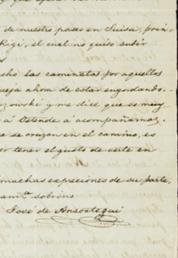 de nuestro paseo en Suiza, por
Rigi, el cual no quiso subir
cho las caminatas por aquellos
queja ahora de estar engordando.
y me dice que es muy
á Ostende á acompañarnos
se en el camino, es
por tener el gusto de verte en
muchas expresiones de su parte,
sobrino
José de Ansoategui